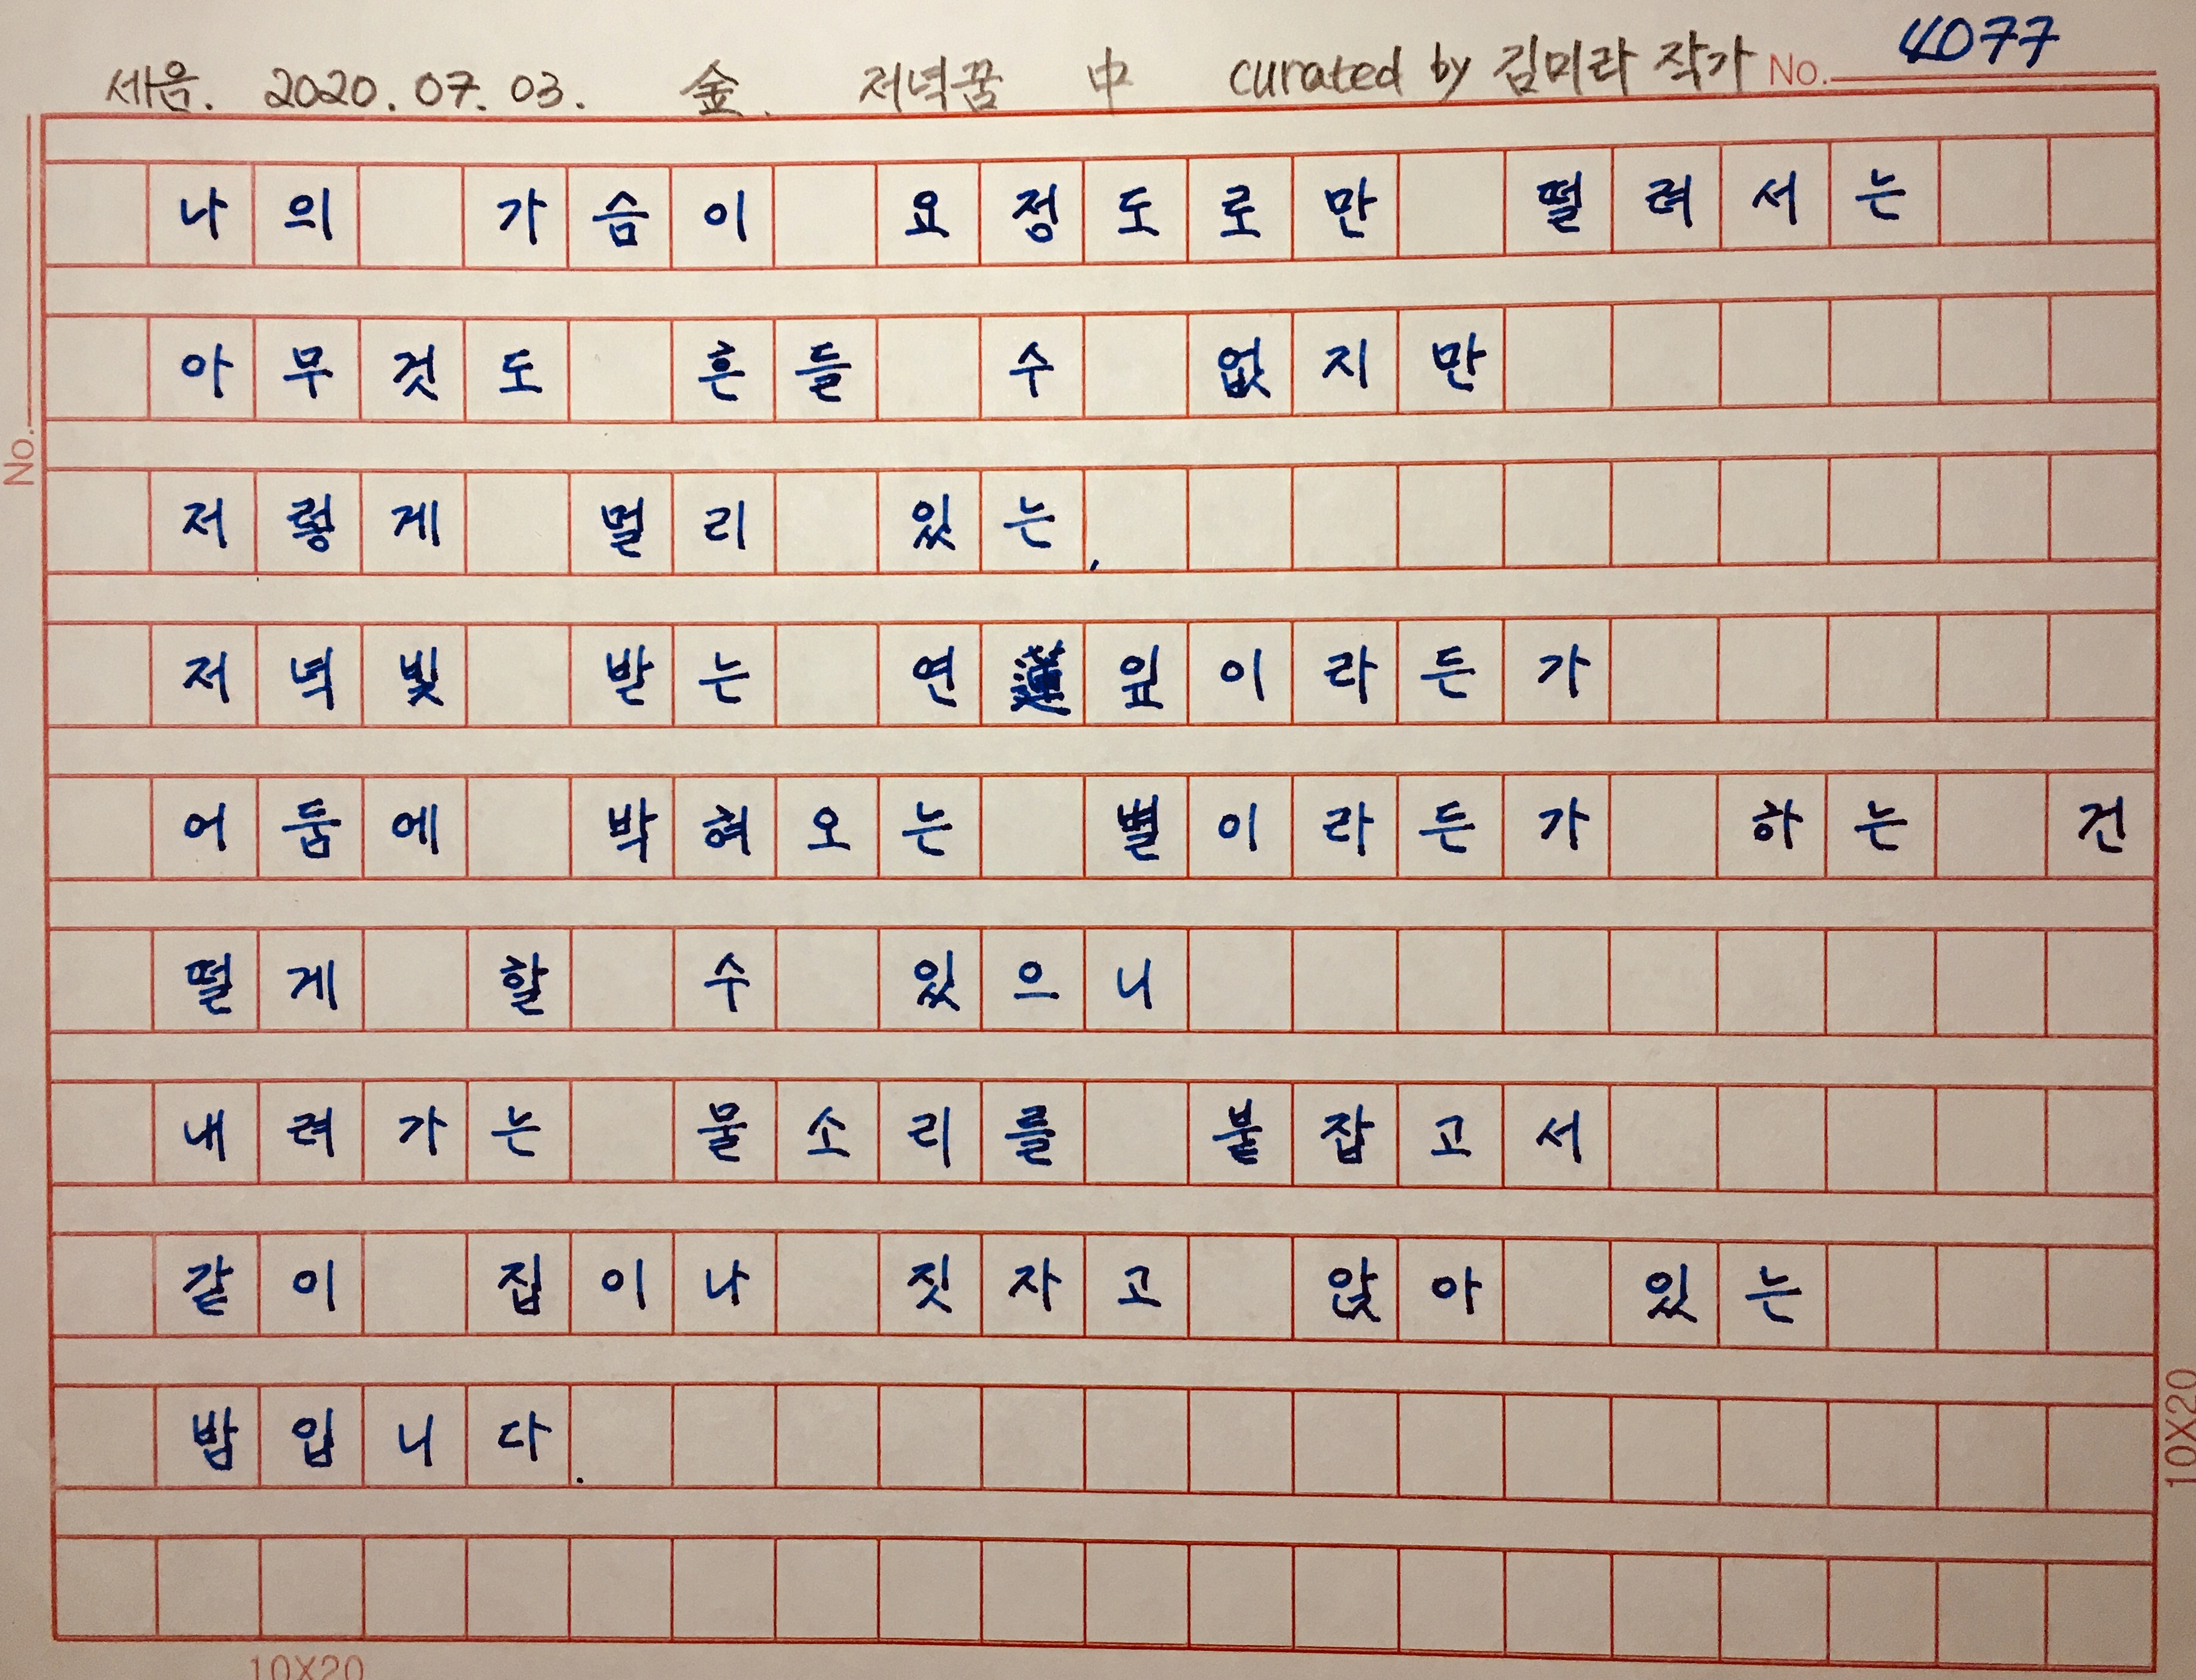 세음. 2020. 07. 03. 金. 저녁꿈 中 curated by 김미라 작가 No. 4077
나의 가슴이 요정도로만 떨려서는
아무것도 흔들 수 없지만
저렇게 멀리 있는,
저녁빛 받는 연蓮잎이라든가
어둠에 박혀오는 별이라든가 하는 건
떨게 할 수 있으니
내려가는 물소리를 붙잡고서
같이 집이나 짓자고 앉아 있는
밤입니다.
No.
10X20
10X20